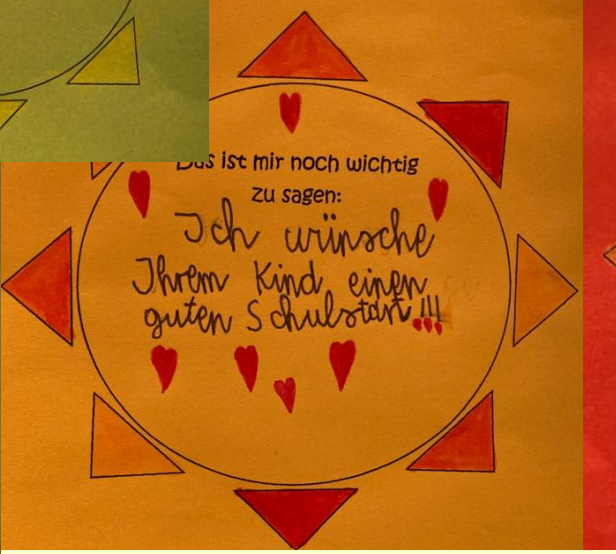 Das ist mir noch wichtig
zu sagen:
Ich wünsche
Ihrem Kind einen
guten Schulstart!!!